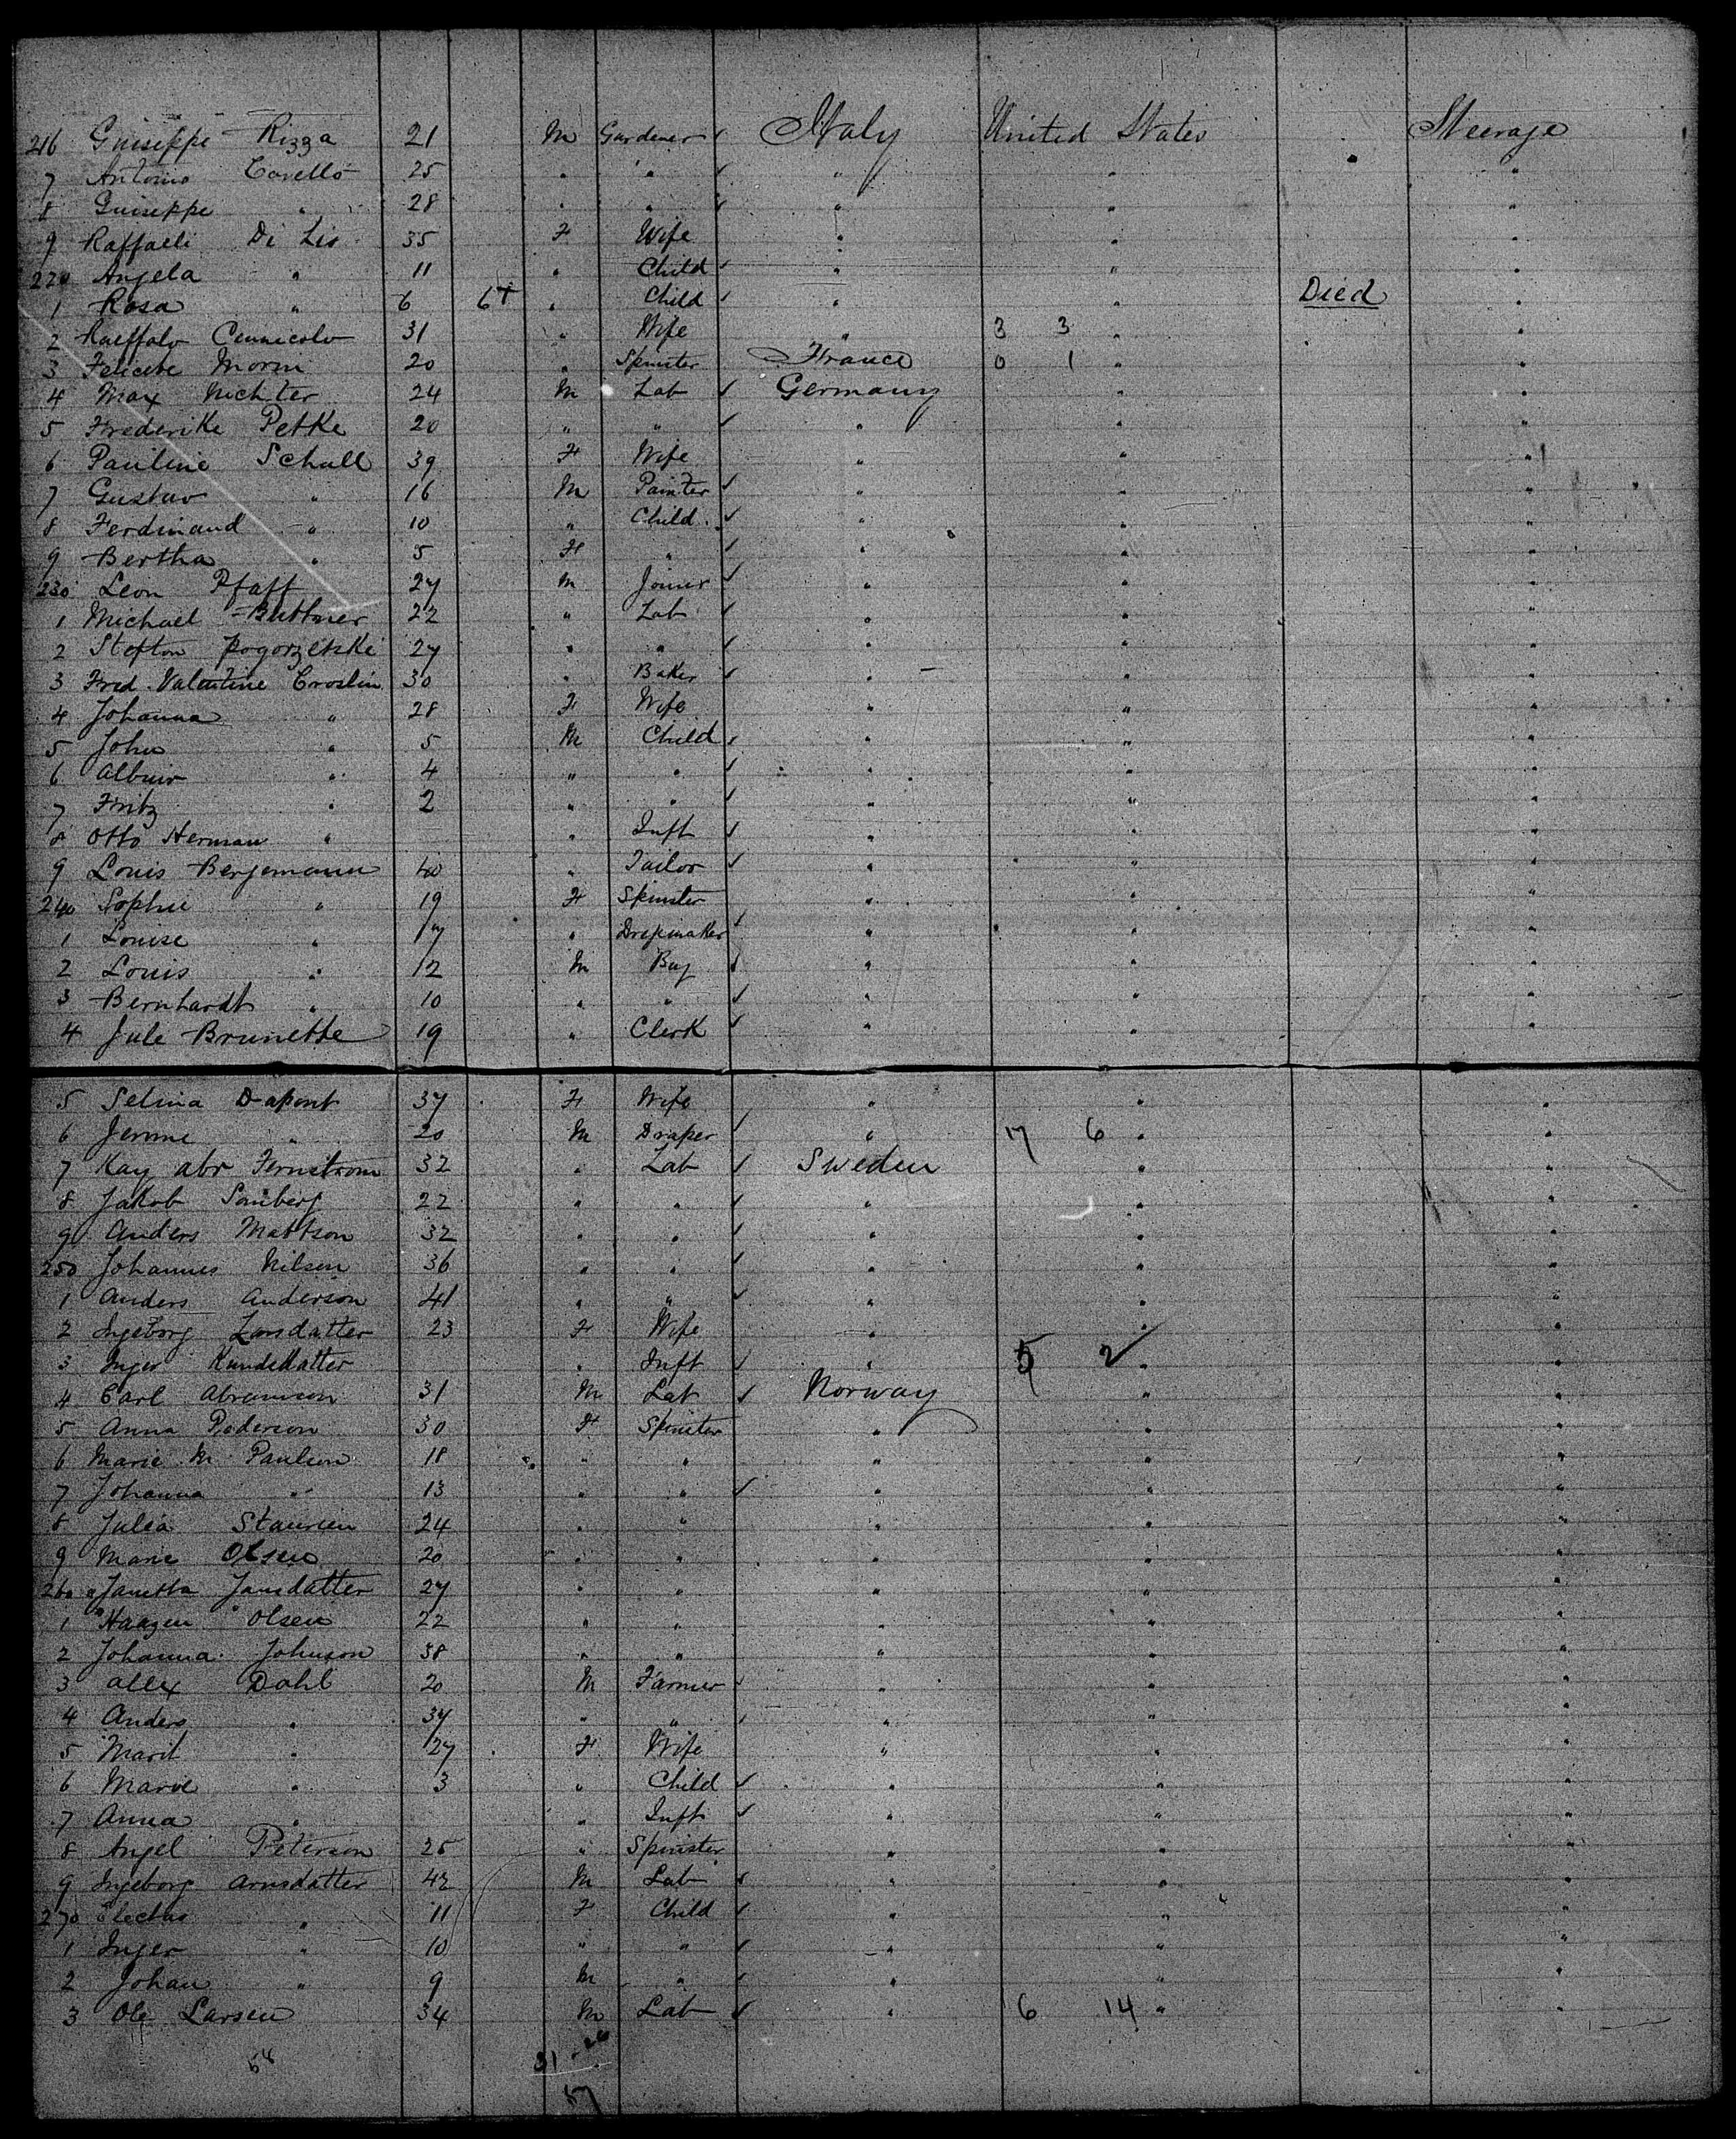 216 Guiseppe Rizza 21 M Gardener ✓ Italy United States Steerage
7 Antonio Covello 25 " " ✓ " " "
8 Guiseppe " 28 " " ✓ " " "
9 Raffaeli Di Lis 35 F Wife " " "
220 Angela " 11 " Child ✓ " " "
1 Rosa " 6 6 " Child ✓ " " Died "
2 Raeffalo 31 " Wife " 3 3 " "
3 Felicite Morin 20 " Spinster France 0 1 " "
4 Max 24 M Lab ✓ Germany " "
5 Frederike Petke 20 " " ✓ " " "
6 Pauline Schull 39 F Wife " " "
7 Gustav " 16 M Painter ✓ " " "
8 Ferdinand " 10 " Child ✓ " " "
9 Bertha " 5 F " ✓ " " "
230 Leon Pfaff 27 M Joiner ✓ " " "
1 Michael Buttner 22 " Lab ✓ " " "
2 Stefton Pogorzelski 27 " " ✓ " " "
3 Fred Valentine Croslin 30 " Baker ✓ " " "
4 Johanna " 28 F Wife " " "
5 John " 5 M Child ✓ " " "
6 " 4 " " ✓ " " "
7 Fritz " 2 " " ✓ " " "
8 Otto Herman " " Inft ✓ " " "
9 Louis Bergemann 40 " Tailor ✓ " " "
240 Sophie " 19 F Spinster " " "
1 Louise " 17 " Dressmaker ✓ " " "
2 Louis " 12 M Boy ✓ " " "
3 Bernhardt " 10 " " ✓ " " "
4 Jule Brunette 19 " Clerk ✓ " " "
5 Selina Dapont 37 F Wife " " "
6 " 20 M Draper ✓ " 17 6 " "
7 Kay abr Fernstrom 32 " Lab ✓ Sweden " "
8 Jakob 22 " " ✓ " " "
9 Anders Mattson 32 " " ✓ " " "
250 Johannes Nilsen 36 " " ✓ " " "
1 Anders Anderson 41 " " ✓ " " "
2 Ingeborg Larsdatter 23 F Wife " " "
3 Inger " Inft ✓ " 5 2 " "
4 Carl Abramson 31 M Lab ✓ Norway " "
5 Anna Pederson 30 F Spinster " " "
6 Marie M Paulsen 18 " " " " "
7 Johanna " 13 " " ✓ " " "
8 Julia 24 " " " " "
9 Marie Olsen 20 " " " " "
260 Janetta Jansdatter 27 " " " " "
1 Haagen Olsen 22 " " " " "
2 Johanna Johnson 38 " " " " "
3 Allex Dahl 20 M Farmer ✓ " " "
4 Anders " 34 " " ✓ " " "
5 Marit " 27 F Wife " " "
6 Marie " 3 " Child ✓ " " "
7 Anna " " Inft ✓ " " "
8 Angel Peterson 25 " Spinster " " "
9 Ingeborg Arnsdatter 42 M Lab ✓ " " "
270 " 11 F Child ✓ " " "
1 Inger " 10 " " ✓ " " "
2 Johan " 9 M " ✓ " " "
3 Ole Larsen 34 M Lab ✓ " 6 14 " "
58 31
57